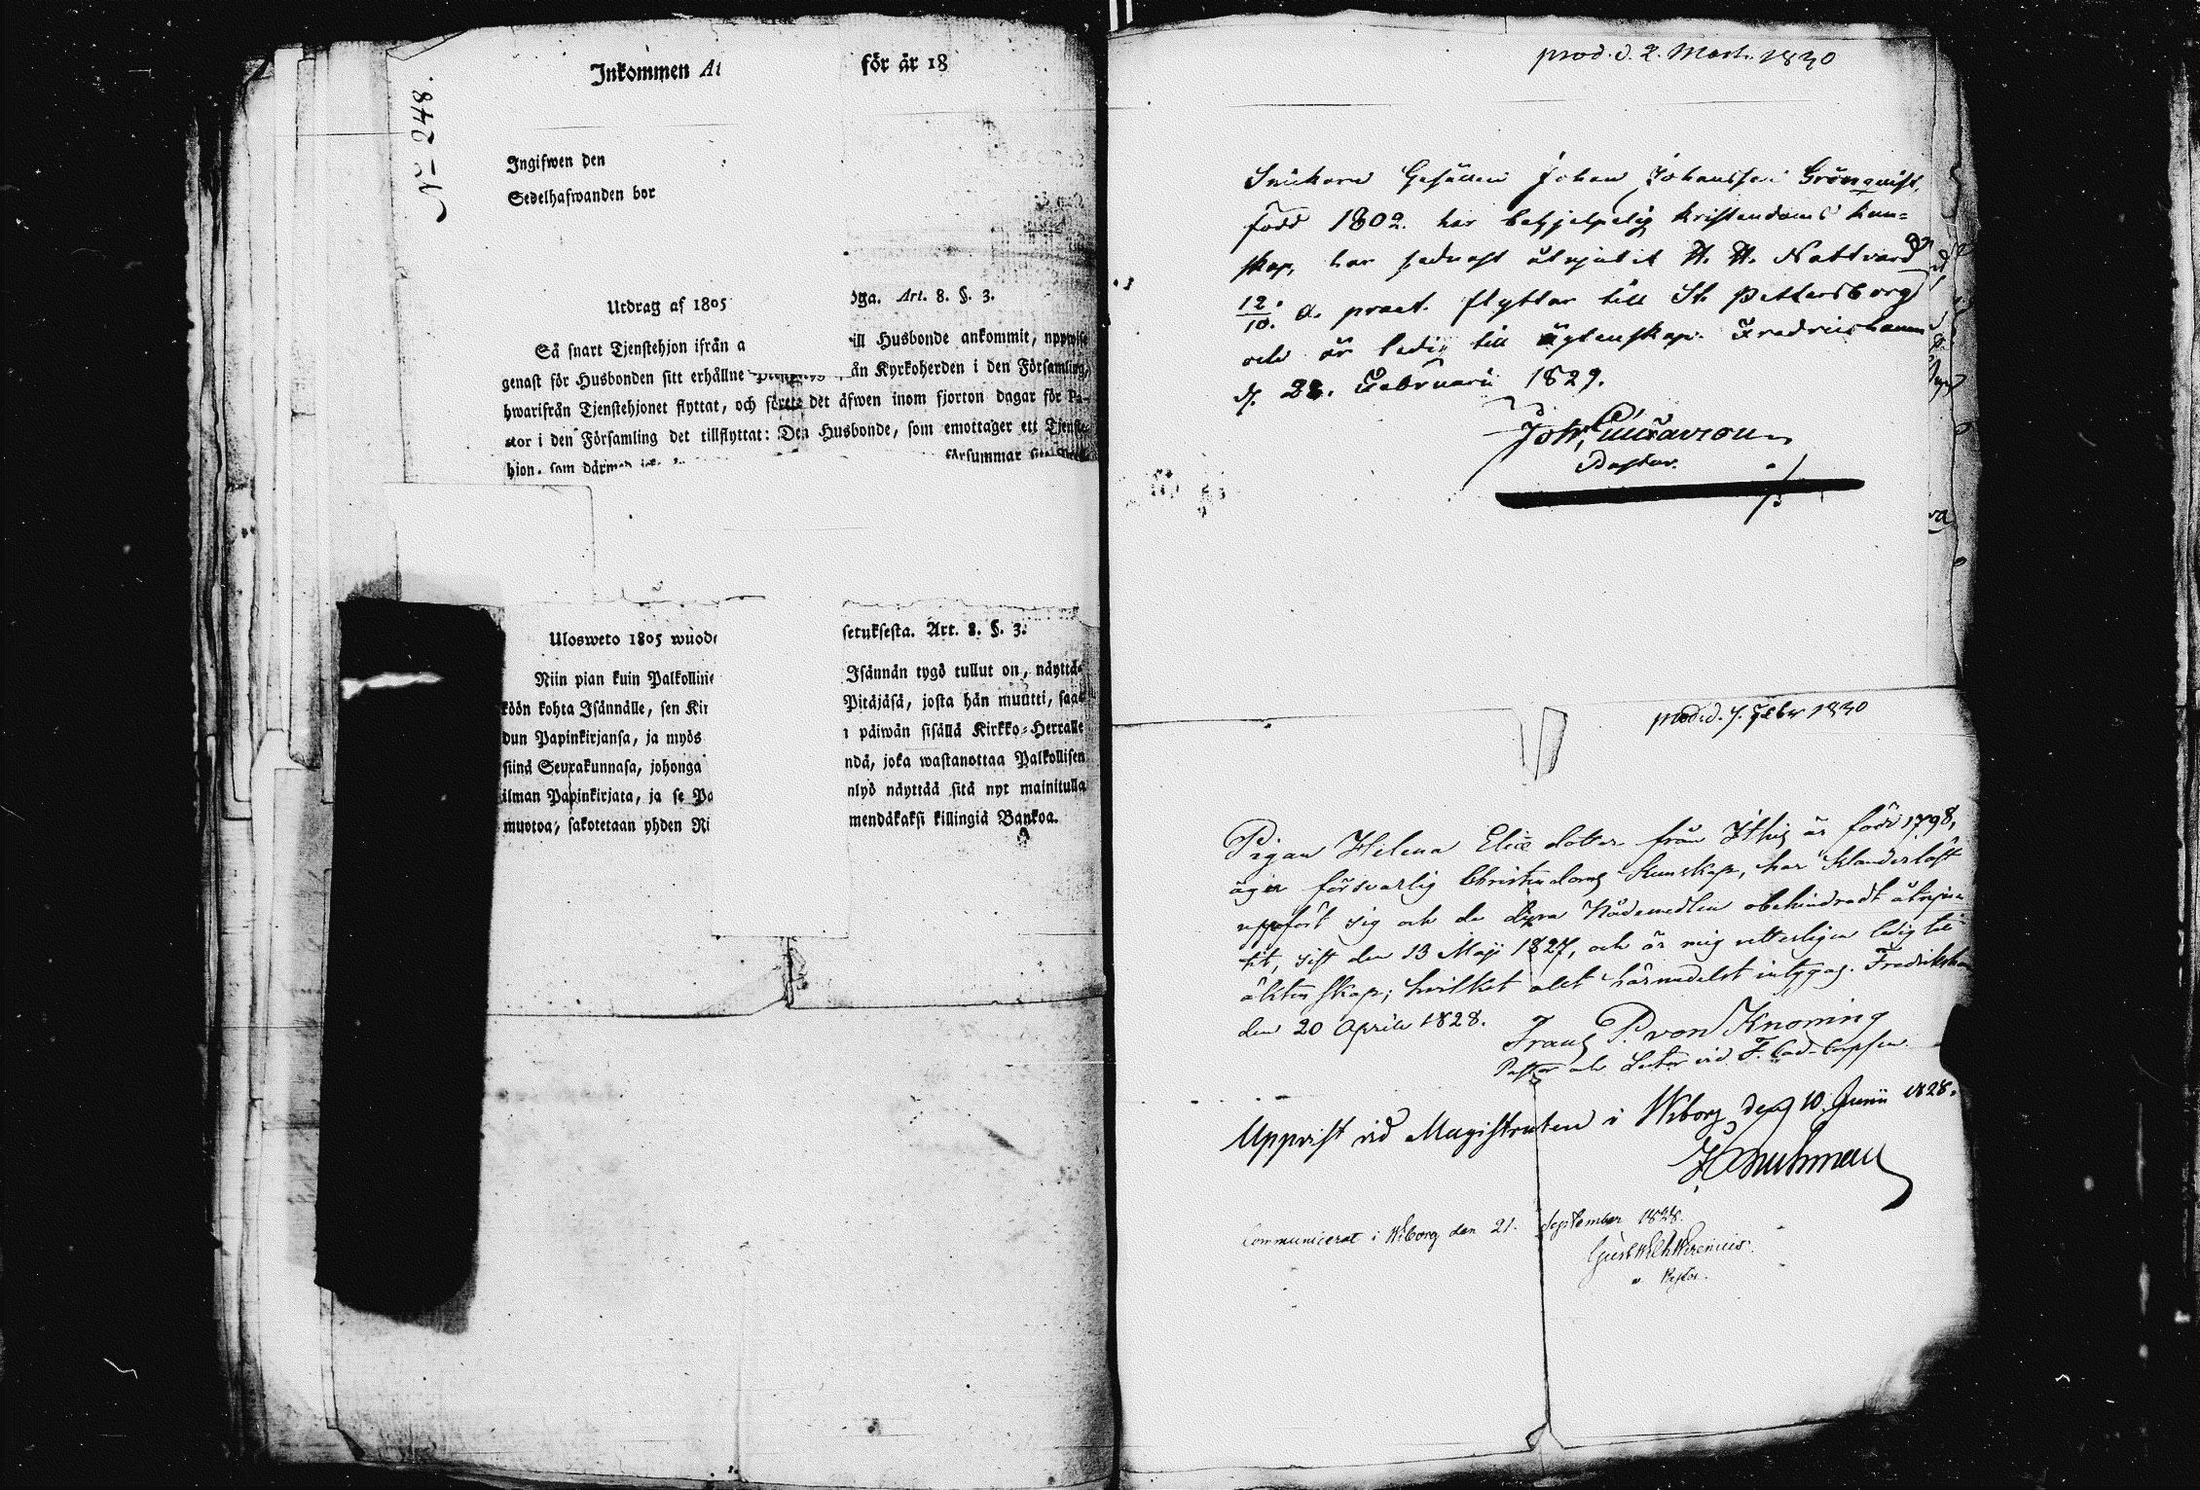 No 248.
Inkommen At
för år 18
Ingifwen den
Sedelhafwanden bor
Utdrag af 1805
oga. Art. 8. §. 3.
Så snart Tjenstehjon ifrån a
ill Husbonde ankommit, uppwise
genast för Husbonden sitt erhållne
ån Kyrkoherden i den Församling,
hwarifrån Tjenstehjonet flyttat, och förete det äfwen inom fjorton dagar för Pa-
stor i den Församling det tillflyttat: Den Husbonde, som emottager ett Tjenste-
hjon, som därmed
försummar
Ulosweto 1805 wuode
setuksesta. Art. 8. §. 3.
Niin pian kuin Palkollinie
Isännän tygö tullut on, näyttä-
köön kohta Isännälle, sen Kir
Pitäjäsä, josta hän muutti, saa-
dun Papinkirjansa, ja myös
n päiwän sisällä Kirkko-Herralle
siinä Seurakunnasa, johonga
ndä, joka wastanottaa Palkollisen
ilman Papinkirjata, ja se Pa
nlyö näyttää sitä nyt mainitulla
muotoa, sakotetaan yhden Ri
mendäkaksi killingiä Bankoa.
prod. d. 2. Mart. 1830
Snickare Gesällen Johan Johansson Grönquist,
född 1802. har behjelpelig kristendoms kun-
skap, har sednast åtnjutit H. H. Nattvard
12/10. a. praet. flyttar till St. Pettersborg
och är ledig till ägtenskap. Fredricshamn
d. 28. Februarii 1829.
Joh.
Pastor.
prod. d. 7. Febr 1830
Pigan Helena Elias dotter från är född 1798,
äger försvarlig Christendoms Kunskap, har klanderlöst
uppfört sig och de dyra Nådemedlen obehindradt åtnju-
tit, sist den 13 Maji 1827, och är mig vetterligen ledig till
äktenskap; hvilket allt härmedelst intygas. Fredriksha
den 20 Aprile 1828.
Frantz P. von Knorring
Pastor och Lector vid F. Cad-Corpsen.
Uppvist vid Magistraten i Wiborg den 10. Junii 1828.
Communicerat i Wiborg den 21. September 1828.
v. Pastor.